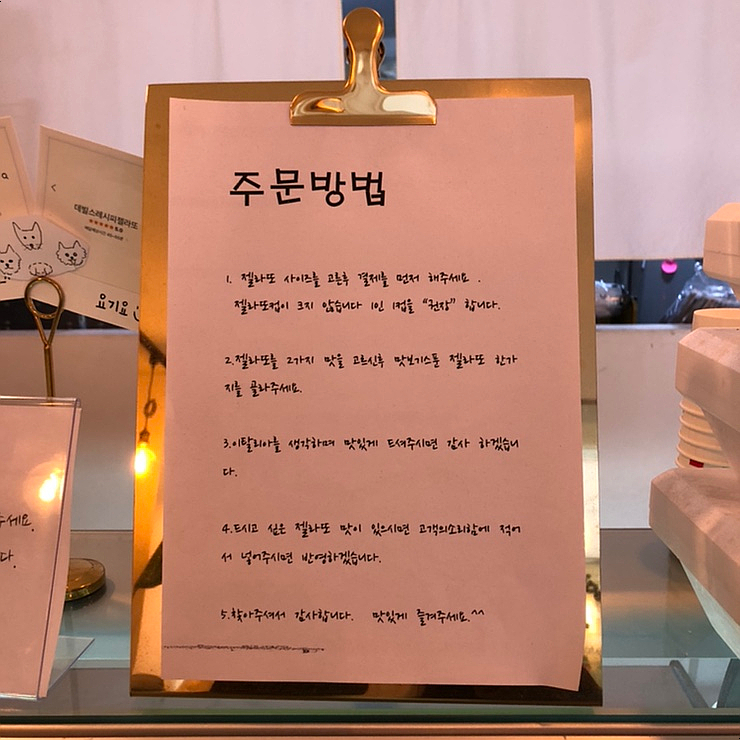 주문방법
1. 젤라또 사이즈를 고른후 결제를 먼저 해주세요 .
젤라또컵이 크지 않습니다 1인 1컵을 "권장" 합니다.
2.젤라또를 2가지 맛을 고르신후 맛보기스푼 젤라또 한가
지를 골라주세요.
3.이탈리아를 생각하며 맛있게 드셔주시면 감사 하겠습니
다.
4.드시고 싶은 젤라또 맛이 있으시면 고객의소리함에 적어
서 넣어주시면 반영하겠습니다.
5.찾아주셔서 감사합니다. 맛있게 즐겨주세요.^^
데빌스레시피젤라또
요기요
주세요.
다.